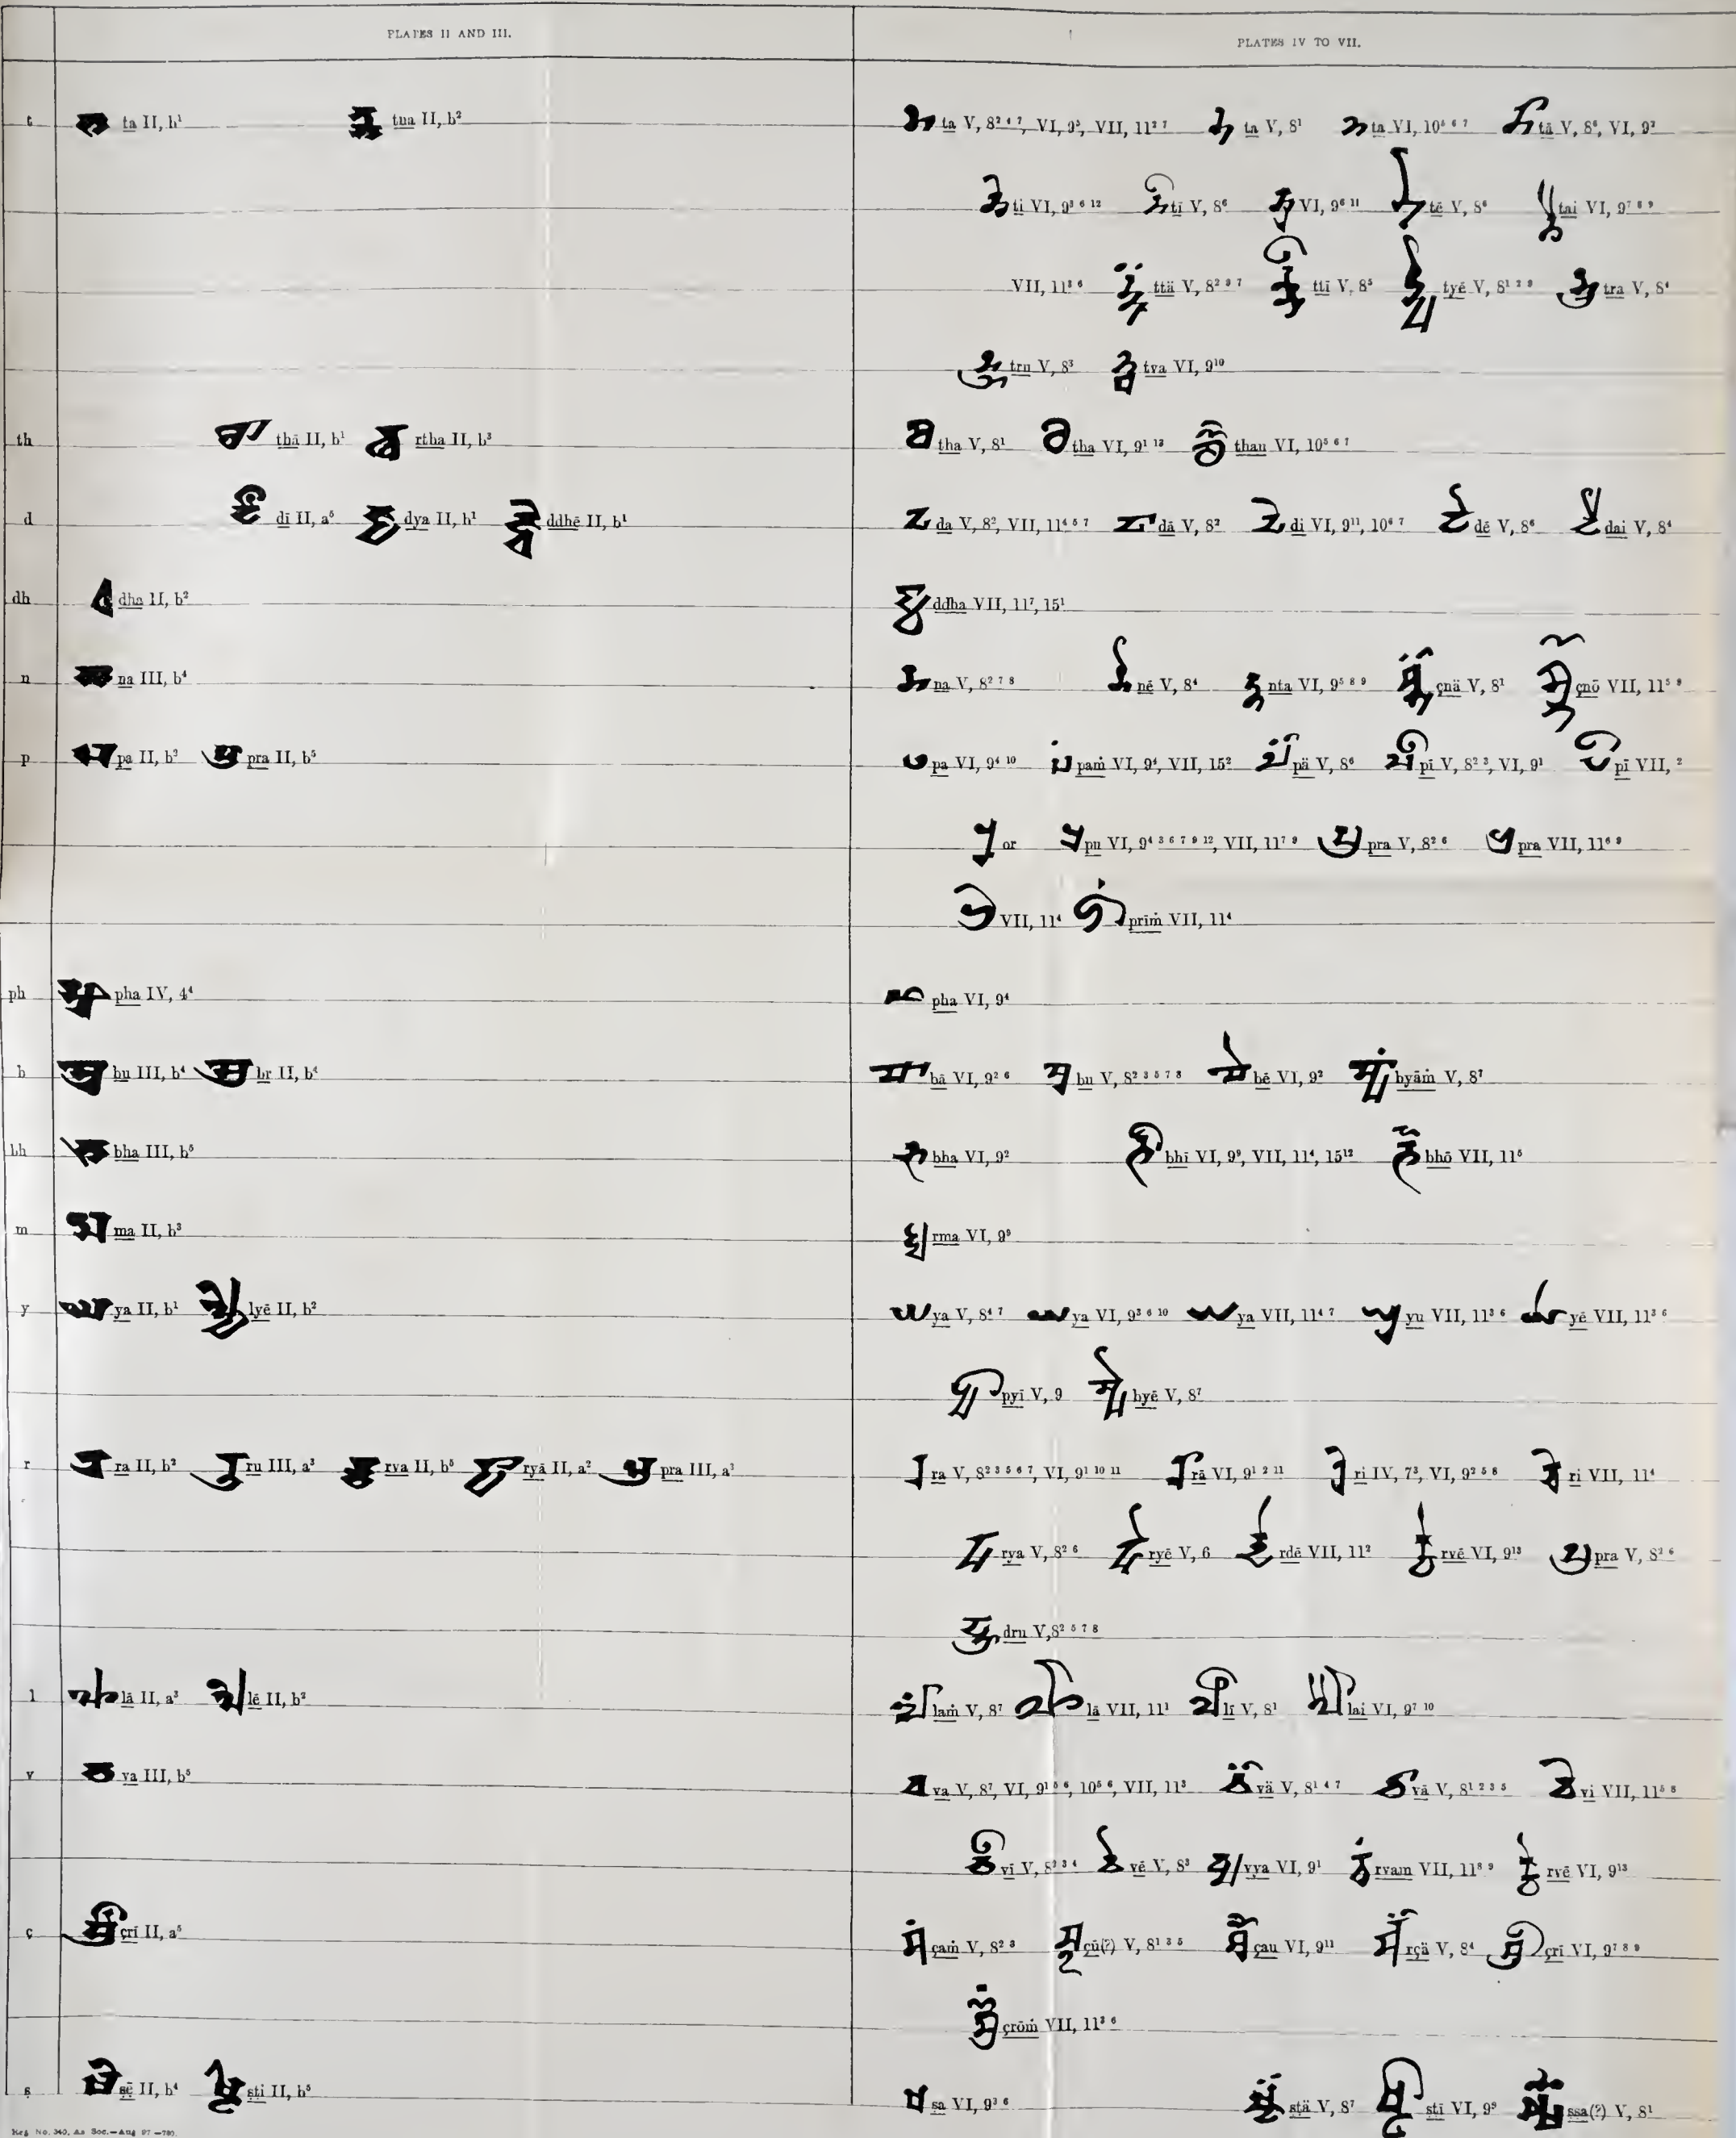 PLATES II AND III. PLATES IV TO VII.
t ta II, b¹ tua II, b² ta V, 8² ⁴ ⁷, VI, 9⁵, VII, 11² ⁷ ta V, 8¹ ta VI, 10⁵ ⁶ ⁷ tā V, 8⁶, VI, 9²
ti VI, 9³ ⁶ ¹² tī V, 8⁶ VI, 9⁶ ¹¹ tē V, 8⁶ tai VI, 9⁷ ⁸ ⁹
VII, 11³ ⁶ ttä V, 8² ³ ⁷ ttī V, 8⁵ tyē V, 8¹ ² ³ tra V, 8⁴
tru V, 8³ tva VI, 9¹⁰
th thā II, b¹ rtha II, b³ tha V, 8¹ tha VI, 9¹ ¹³ thau VI, 10⁵ ⁶ ⁷
d dī II, a⁵ dya II, b¹ ddhē II, b¹ da V, 8², VII, 11⁴ ⁵ ⁷ dā V, 8² di VI, 9¹¹, 10⁶ ⁷ dē V, 8⁶ dai V, 8⁴
dh dha II, b² ddha VII, 11⁷, 15¹
n na III, b⁴ na V, 8² ⁷ ⁸ nē V, 8⁴ nta VI, 9⁵ ⁸ ⁹ çnä V, 8¹ çnō VII, 11⁵ ⁸
p pa II, b² pra II, b⁵ pa VI, 9⁴ ¹⁰ paṁ VI, 9⁴, VII, 15² pä V, 8⁶ pī V, 8² ³, VI, 9¹ pī VII, ²
or pu VI, 9⁴ ³ ⁶ ⁷ ⁹ ¹², VII, 11⁷ ⁹ pra V, 8² ⁶ pra VII, 11⁶ ⁹
VII, 11⁴ prīṁ VII, 11⁴
ph pha IV, 4⁴ pha VI, 9⁴
b bu III, b⁴ br II, b⁴ bā VI, 9² ⁶ bu V, 8² ³ ⁵ ⁷ ⁸ bē VI, 9² byāṁ V, 8⁷
bh bha III, b⁵ bha VI, 9² bhī VI, 9⁹, VII, 11⁴, 15¹² bhō VII, 11⁵
m ma II, b³ rma VI, 9⁹
y ya II, b¹ lyē II, b² ya V, 8⁴ ⁷ ya VI, 9³ ⁶ ¹⁰ ya VII, 11⁴ ⁷ yu VII, 11³ ⁶ yē VII, 11³ ⁶
pyī V, 9 byē V, 8⁷
r ra II, b² ru III, a³ rva II, b⁵ ryā II, a² pra III, a¹ ra V, 8² ³ ⁵ ⁶ ⁷, VI, 9¹ ¹⁰ ¹¹ rā VI, 9¹ ² ¹¹ ri IV, 7³, VI, 9² ⁵ ⁸ ri VII, 11⁴
rya V, 8² ⁶ ryē V, 6 rdē VII, 11² rvē VI, 9¹³ pra V, 8² ⁶
dru V, 8² ⁵ ⁷ ⁸
l lā II, a³ lē II, b² laṁ V, 8⁷ lā VII, 11¹ lī V, 8¹ lai VI, 9⁷ ¹⁰
v va III, b⁵ va V, 8⁷, VI, 9¹ ⁵ ⁶, 10⁵ ⁶, VII, 11³ vä V, 8¹ ⁴ ⁷ vā V, 8¹ ² ³ ⁵ vi VII, 11⁵ ⁸
vī V, 8² ³ ⁴ vē V, 8³ vya VI, 9¹ rvam VII, 11⁸ ⁹ rvē VI, 9¹³
ç çrī II, a⁵ çaṁ V, 8² ³ çū(?) V, 8¹ ³ ⁵ çau VI, 9¹¹ rçä V, 8⁴ çrī VI, 9⁷ ⁸ ⁹
çrōṁ VII, 11³ ⁶
ṣ ṣē II, b⁴ ṣṭi II, b⁵ ṣa VI, 9³ ⁶ ṣṭä V, 8⁷ ṣṭī VI, 9⁹ ṣṣa(?) V, 8¹
Reg. No. 340, As Soc.—Aug 97—780.